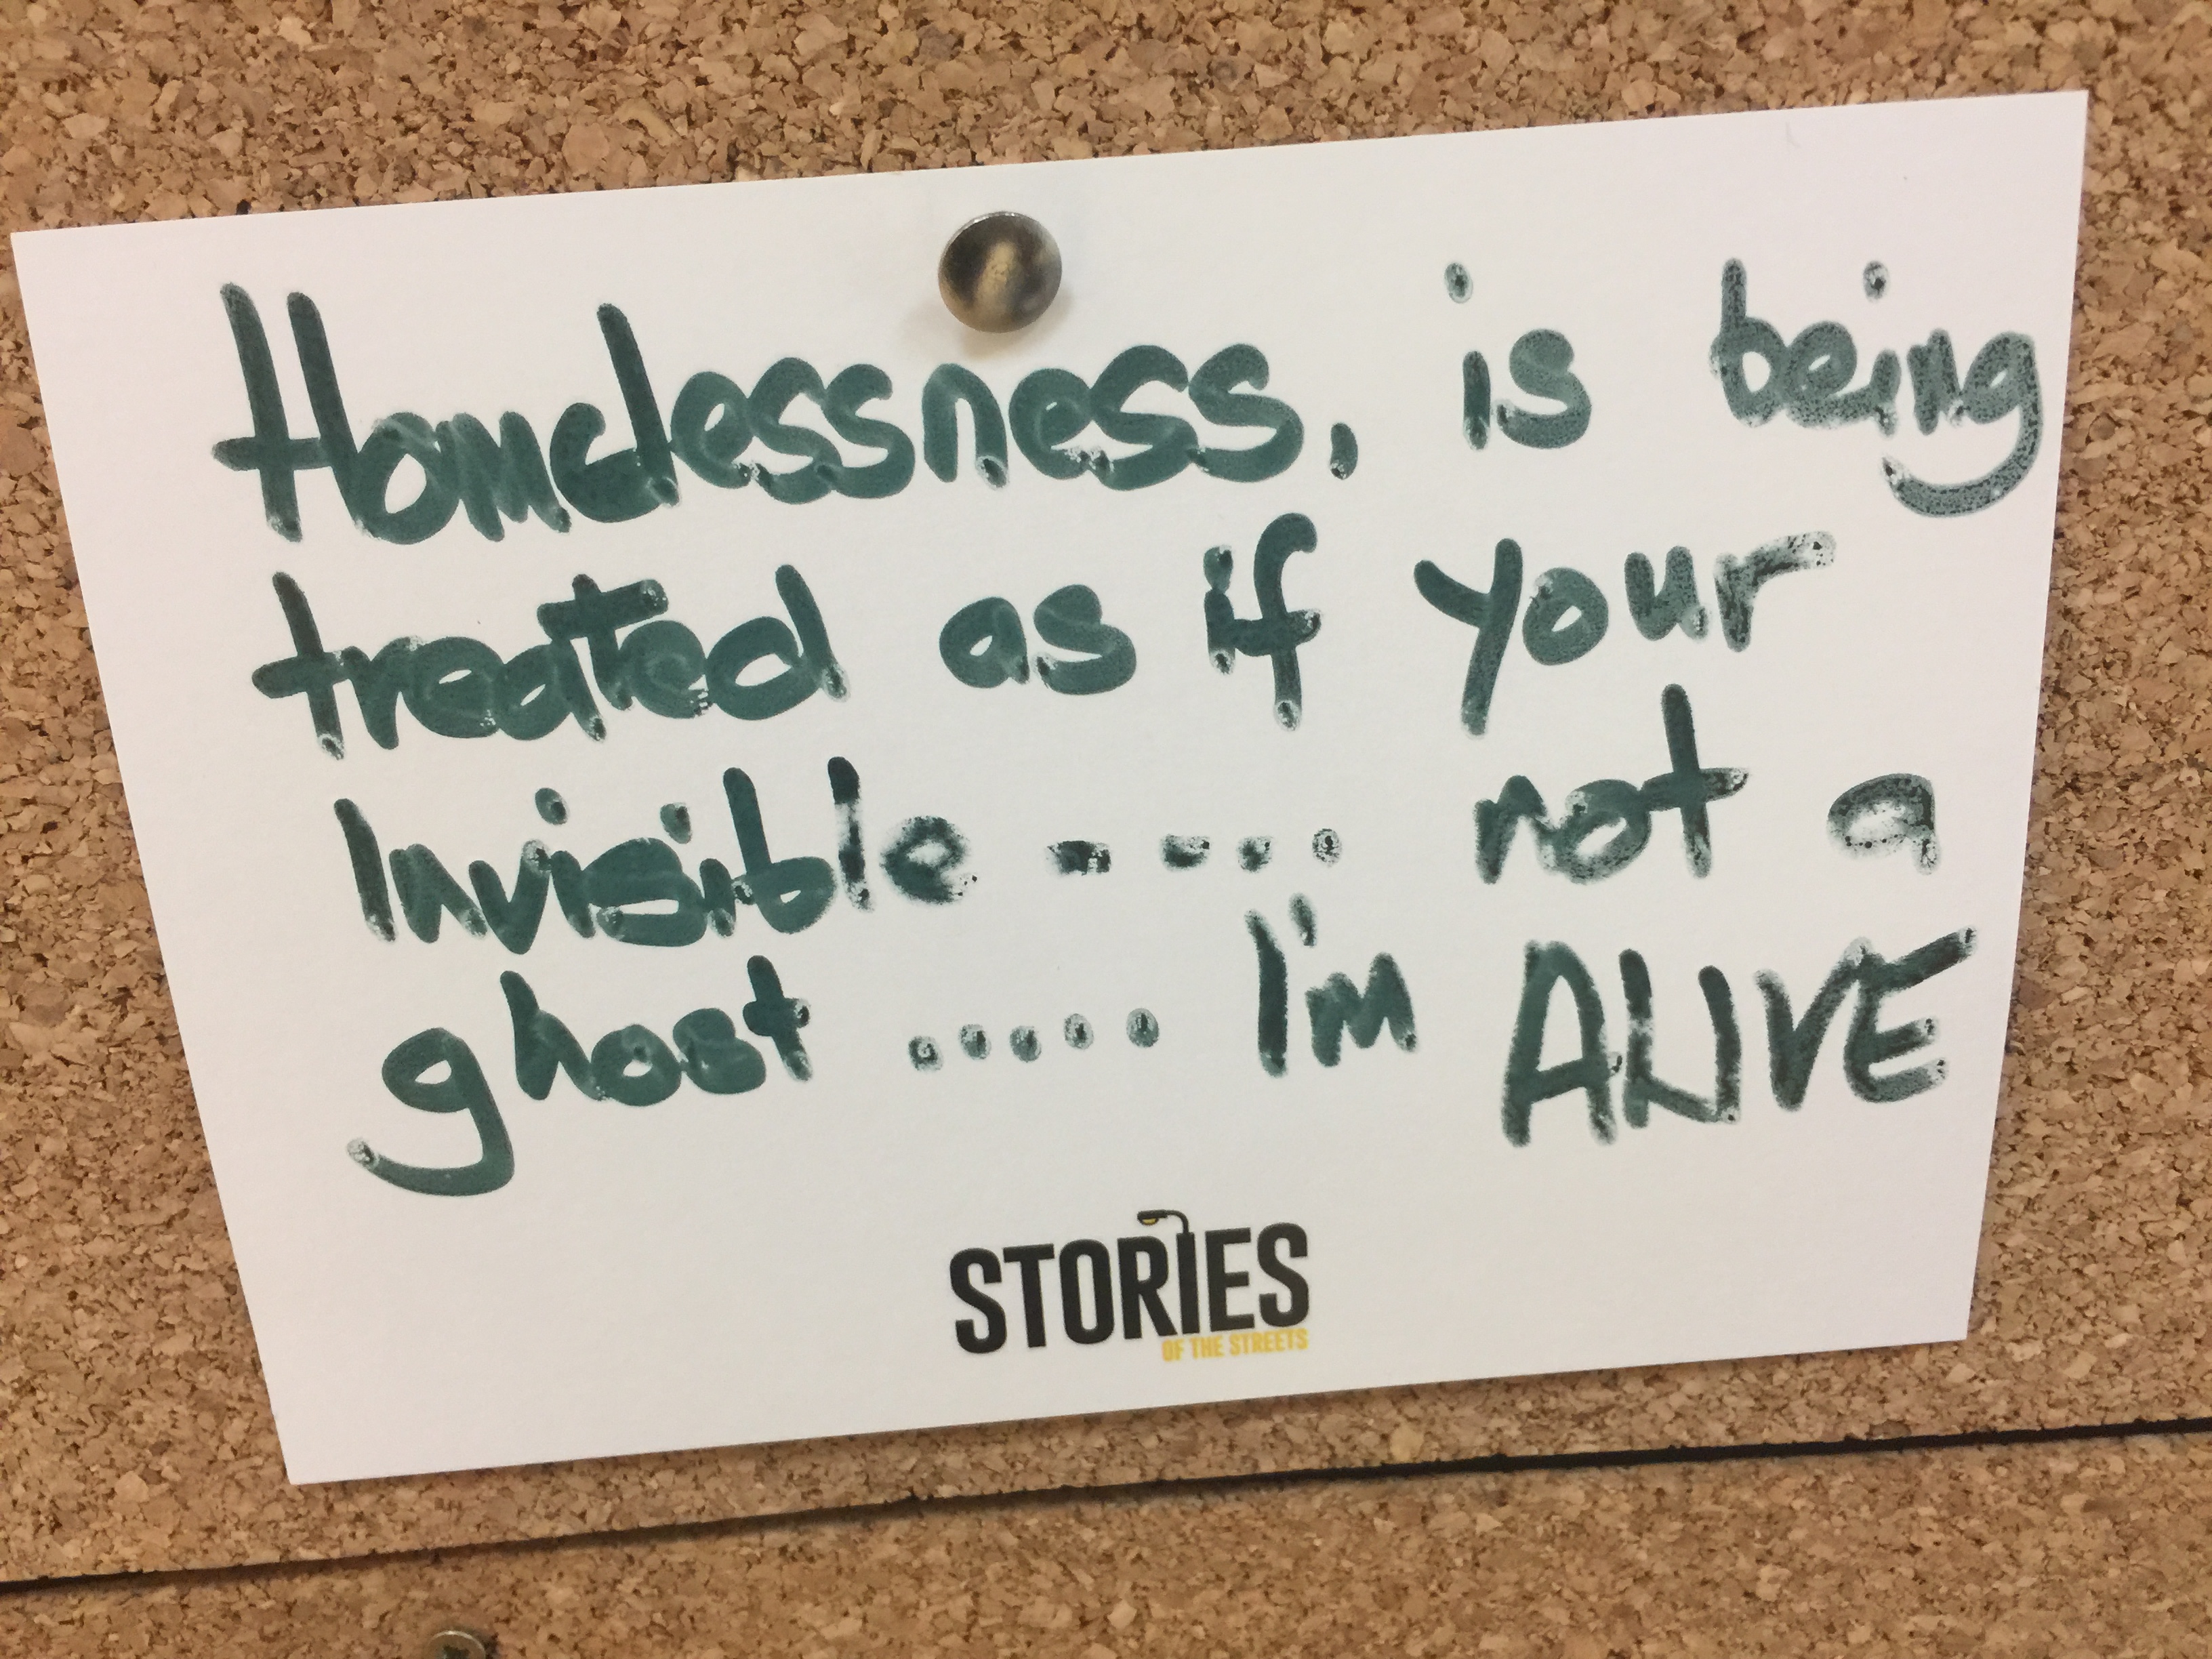 Homelessness, is being
treated as if your
Invisible .... not a
ghost ..... I'm ALIVE
STORIES
OF THE STREETS